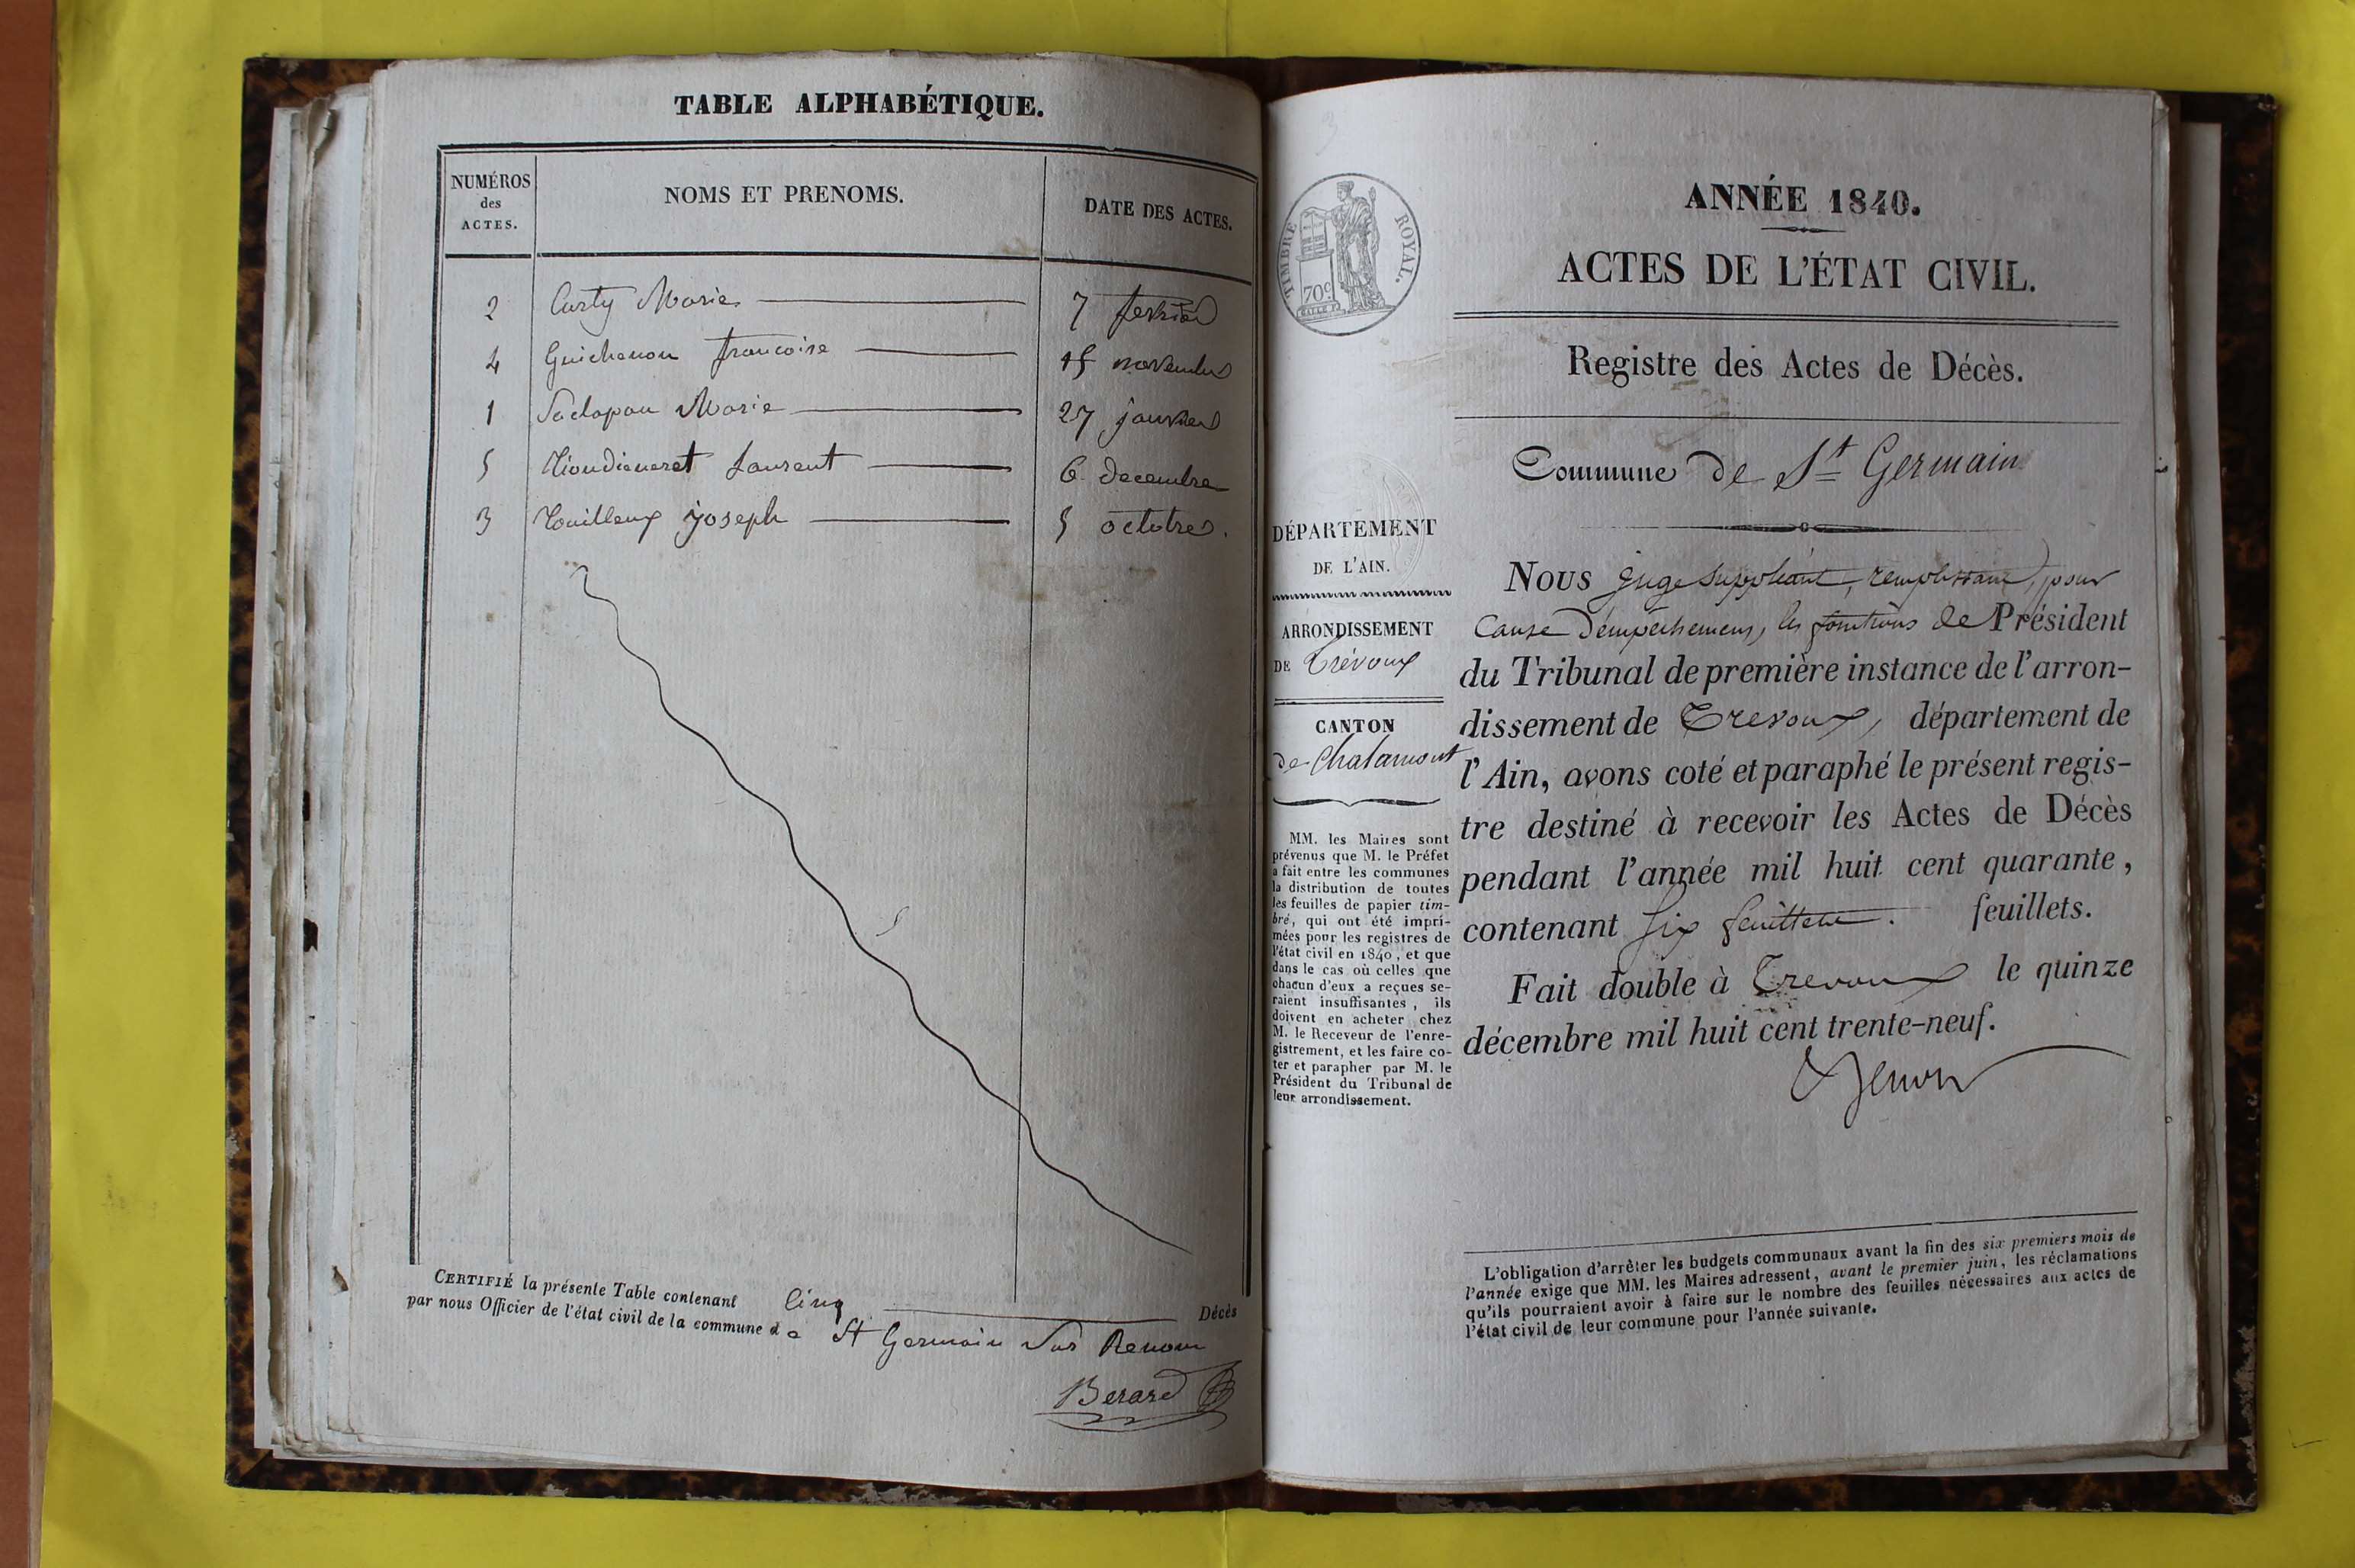 TABLE ALPHABÉTIQUE.
NUMÉROS
des
ACTES.
NOMS ET PRENOMS.
DATE DES ACTES.
2 Curty Marie 7 fevrier
4 Guichenon francoise 15 novembre
1 Marie 27 janvier
5 Laurent 6 decembre
3 Touilleux joseph 5 octobre.
CERTIFIÉ la présente Table contenant cinq Décès
par nous Officier de l'état civil de la commune de St Germain Sur Renom
Berard
TIMBRE ROYAL.
70c
ANNÉE 1840.
ACTES DE L'ÉTAT CIVIL.
Registre des Actes de Décès.
Commune de St Germain
DÉPARTEMENT
DE L'AIN.
ARRONDISSEMENT
DE Trévoux
CANTON
de Chalamont
MM. les Maires sont
prévenus que M. le Préfet
a fait entre les communes
la distribution de toutes
les feuilles de papier tim-
bré, qui ont été impri-
mées pour les registres de
l'état civil en 1840, et que
dans le cas où celles que
chacun d'eux a reçues se-
raient insuffisantes, ils
doivent en acheter chez
M. le Receveur de l'enre-
gistrement, et les faire co-
ter et parapher par M. le
Président du Tribunal de
leur arrondissement.
Nous juge suppléant, remplissant, pour
cause d'empêchement, les fonctions de Président
du Tribunal de première instance de l'arron-
dissement de Trevoux, département de
l'Ain, avons coté et paraphé le présent regis-
tre destiné à recevoir les Actes de Décès
pendant l'année mil huit cent quarante,
contenant six feuillets. feuillets.
Fait double à Trevoux le quinze
décembre mil huit cent trente-neuf.
L'obligation d'arrêter les budgets communaux avant la fin des six premiers mois de
l'année exige que MM. les Maires adressent, avant le premier juin, les réclamations
qu'ils pourraient avoir à faire sur le nombre des feuilles nécessaires aux actes de
l'état civil de leur commune pour l'année suivante.